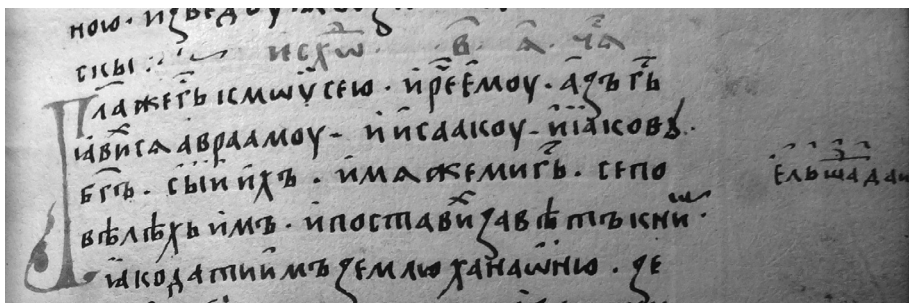 ною · изведоу
скы ·:
исхѡ · в҃ · а҃ · ча
Гл҃аже гь҃ к мѡѵсею · и рече емоу · азъ гь҃
ꙗвихсѧ авраамоу – и исаакоу – и іаковꙋ ·
бг҃ъ · сыи ихъ · имѧже ми гь҃ · се по
ель шадаи
вѣлѣхь имъ · и поставих завѣтъ к ни ·
ꙗко дати имъ землю ханаѡню · зе